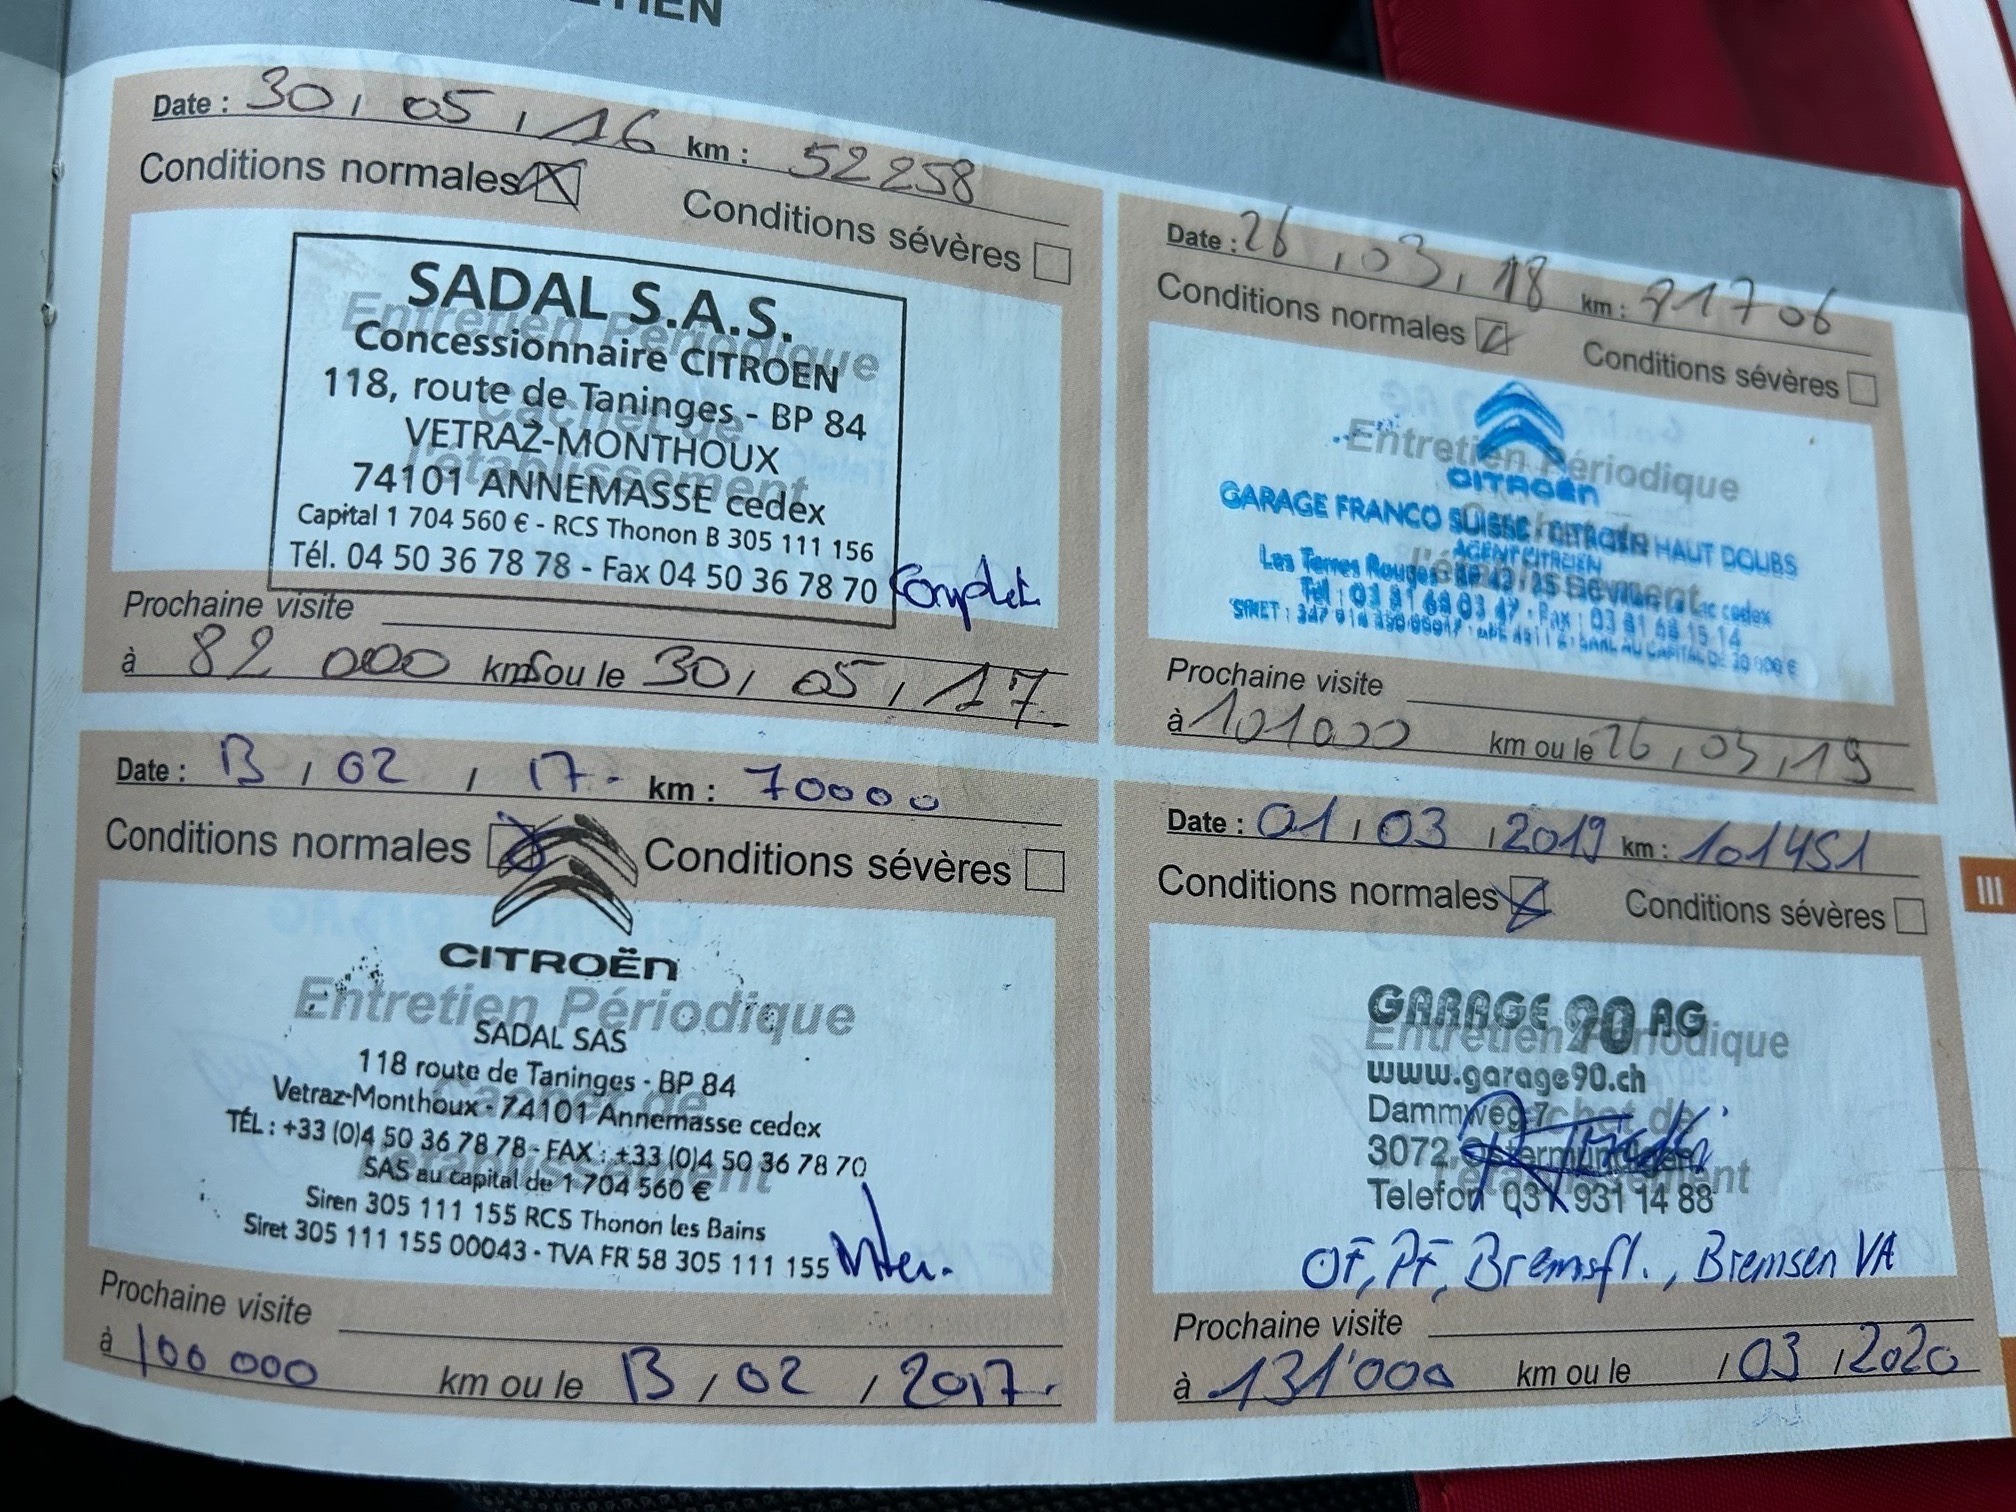 TIEN
Date : 30 / 05 / 16 km : 52258
Conditions normales Conditions sévères
Entretien Périodique
Cachet de
l'établissement
SADAL S.A.S.
Concessionnaire CITROEN
118, route de Taninges - BP 84
VETRAZ-MONTHOUX
74101 ANNEMASSE cedex
Capital 1 704 560 € - RCS Thonon B 305 111 156
Tél. 04 50 36 78 78 - Fax 04 50 36 78 70
Complet
Prochaine visite
à 82 000 kms ou le 30 / 05 / 17
Date : 13 / 02 / 17. km : 70000
Conditions normales Conditions sévères
CITROËN
Entretien Périodique
SADAL SAS
118 route de Taninges - BP 84
Vetraz-Monthoux - 74101 Annemasse cedex
TÉL : +33 (0)4 50 36 78 78 - FAX : +33 (0)4 50 36 78 70
SAS au capital de 1 704 560 €
Siren 305 111 155 RCS Thonon les Bains
Siret 305 111 155 00043 - TVA FR 58 305 111 155
Prochaine visite
à 100 000 km ou le 13 / 02 / 2017.
Date : 26 / 03 / 18 km : 1706
Conditions normales Conditions sévères
Entretien Périodique
CITROËN
GARAGE FRANCO SUISSE / CITROËN HAUT DOUBS
AGENT CITROËN
Les Terres Rouges cedex
Tél : 03 81 68 03 47 - Fax : 03 81 68 15 14
SARL AU CAPITAL DE
Prochaine visite
à 101000 km ou le 26 / 03 / 19
Date : 01 / 03 / 2019 km : 101451
Conditions normales Conditions sévères
GARAGE 90 AG
Entretien Périodique
www.garage90.ch
Dammweg 7
3072 Ostermundigen
Telefon 031 931 14 88
OF, PF, Bremsfl., Bremsen VA
Prochaine visite
à 131'000 km ou le / 03 / 2020
III